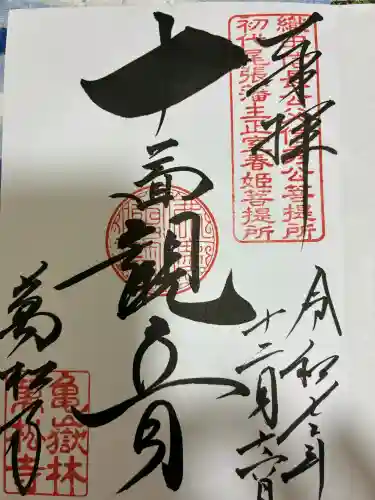 奉拝
織田信長公信秀公菩提所
初代尾張藩主正室春姫菩提所
令和七年
十二月十六日
十一面観音
萬松寺
亀嶽林
萬松寺